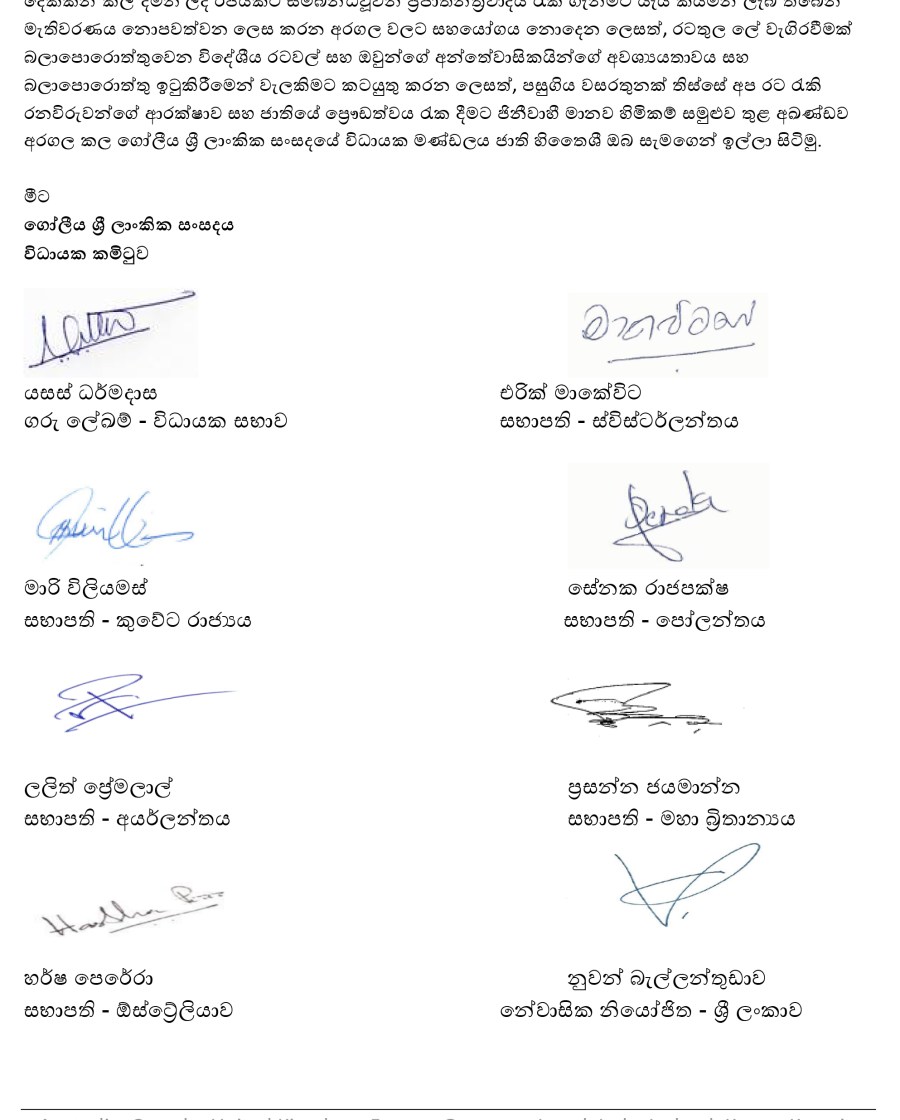 මැතිවරණය නොපවත්වන ලෙස කරන අරගල වලට සහයෝගය නොදෙන ලෙසත්, රටතුල ලේ වැගිරවීමක්
බලාපොරොත්තුවෙන විදේශීය රටවල් සහ ඔවුන්ගේ අන්තේවාසිකයින්ගේ අවශ්‍යතාවය සහ
බලාපොරොත්තු ඉටුකිරීමෙන් වැලකීමට කටයුතු කරන ලෙසත්, පසුගිය වසරතුනක් තිස්සේ අප රට රැකි
රනවිරුවන්ගේ ආරක්ෂාව සහ ජාතියේ ප්‍රෞඩත්වය රැක දීමට ජිනීවාහී මානව හිමිකම් සමුළුව තුළ අඛණ්ඩව
අරගල කල ගෝලීය ශ්‍රී ලාංකික සංසදයේ විධායක මණ්ඩලය ජාති හිතෛශී ඔබ සැමගෙන් ඉල්ලා සිටිමු.
මීට
ගෝලීය ශ්‍රී ලාංකික සංසදය
විධායක කමිටුව
යසස් ධර්මදාස
ගරු ලේඛම් - විධායක සභාව
එරික් මාකේවිට
සභාපති - ස්විස්ටර්ලන්තය
මාරි විලියමස්
සභාපති - කුවේට රාජ්‍යය
සේනක රාජපක්ෂ
සභාපති - පෝලන්තය
ලලිත් ප්‍රේමලාල්
සභාපති - අයර්ලන්තය
ප්‍රසන්න ජයමාන්න
සභාපති - මහා බ්‍රිතාන්‍යය
හර්ෂ පෙරේරා
සභාපති - ඕස්ට්‍රේලියාව
නුවන් බැල්ලන්තුඩාව
නේවාසික නියෝජිත - ශ්‍රී ලංකාව